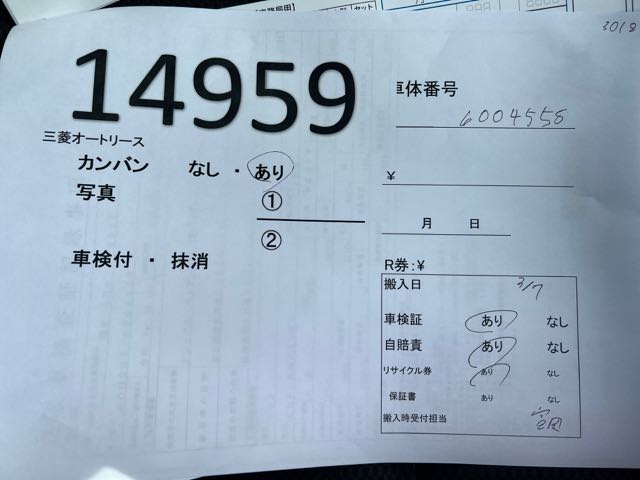 3018
14959
車体番号
6004558
三菱オートリース
カンバン なし ・ あり
¥
写真 ①
月 日
②
車検付 ・ 抹消
R券:¥
搬入日 3/7
車検証 あり なし
自賠責 あり なし
リサイクル券 あり なし
保証書 あり なし
搬入時受付担当